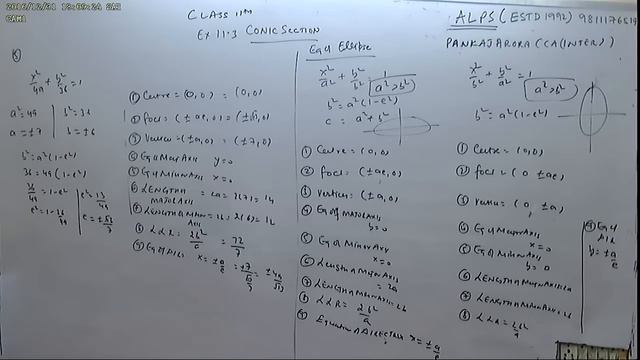 2016/12/31 18:09:24 SAT
CAM1
CLASS 11th
EX 11.3 CONIC SECTION
ALPS (ESTD 1992) 9811176519
PANKAJ ARORA (CA (INTER))
x²/49 + y²/36 = 1
a² = 49
b² = 36
a = ±7
b = ±6
b² = a²(1-e²)
36 = 49(1-e²)
36/49 = 1-e²
e² = 1-36/49
e² = 13/49
e = ±√13/7
① Centre = (0,0) = (0,0)
② foci = (±ae,0) = (±√13,0)
③ vertices = (±a,0) = (±7,0)
④ Eq of Major Axis y=0
⑤ Eq of Minor Axis x=0
⑥ LENGTH of MAJOR AXIS = 2a = 2(7) = 14
⑦ LENGTH of Minor Axis = 2b = 2(6) = 12
⑧ LLR = 2b²/a = 72/7
⑨ Eq of Dir x = ±a/e
Eq of Ellipse
x²/a² + y²/b² = 1
a² > b²
b² = a²(1-e²)
① Centre = (0,0)
② foci = (±ae,0)
③ vertices = (±a,0)
④ Eq of MAJOR AXIS
y=0
⑤ Eq of Minor Axis
x=0
⑥ Length of Major Axis
= 2a
⑦ LENGTH of Minor Axis = 2b
⑧ LLR = 2b²/a
⑨ Equation of DIRECTRIX x = ±a/e
a² > b²
b² = a²(1-e²)
① Centre = (0,0)
② foci = (0 ±ae)
③ vertices = (0, ±a)
④ Eq of Major Axis
x=0
⑤ Eq of Minor Axis
y=0
⑥ LENGTH of Major Axis = 2a
⑦ LENGTH of Minor Axis = 2b
⑧ LLR = 2b²/a
⑨ Eq of
DIR
y = ±a/e